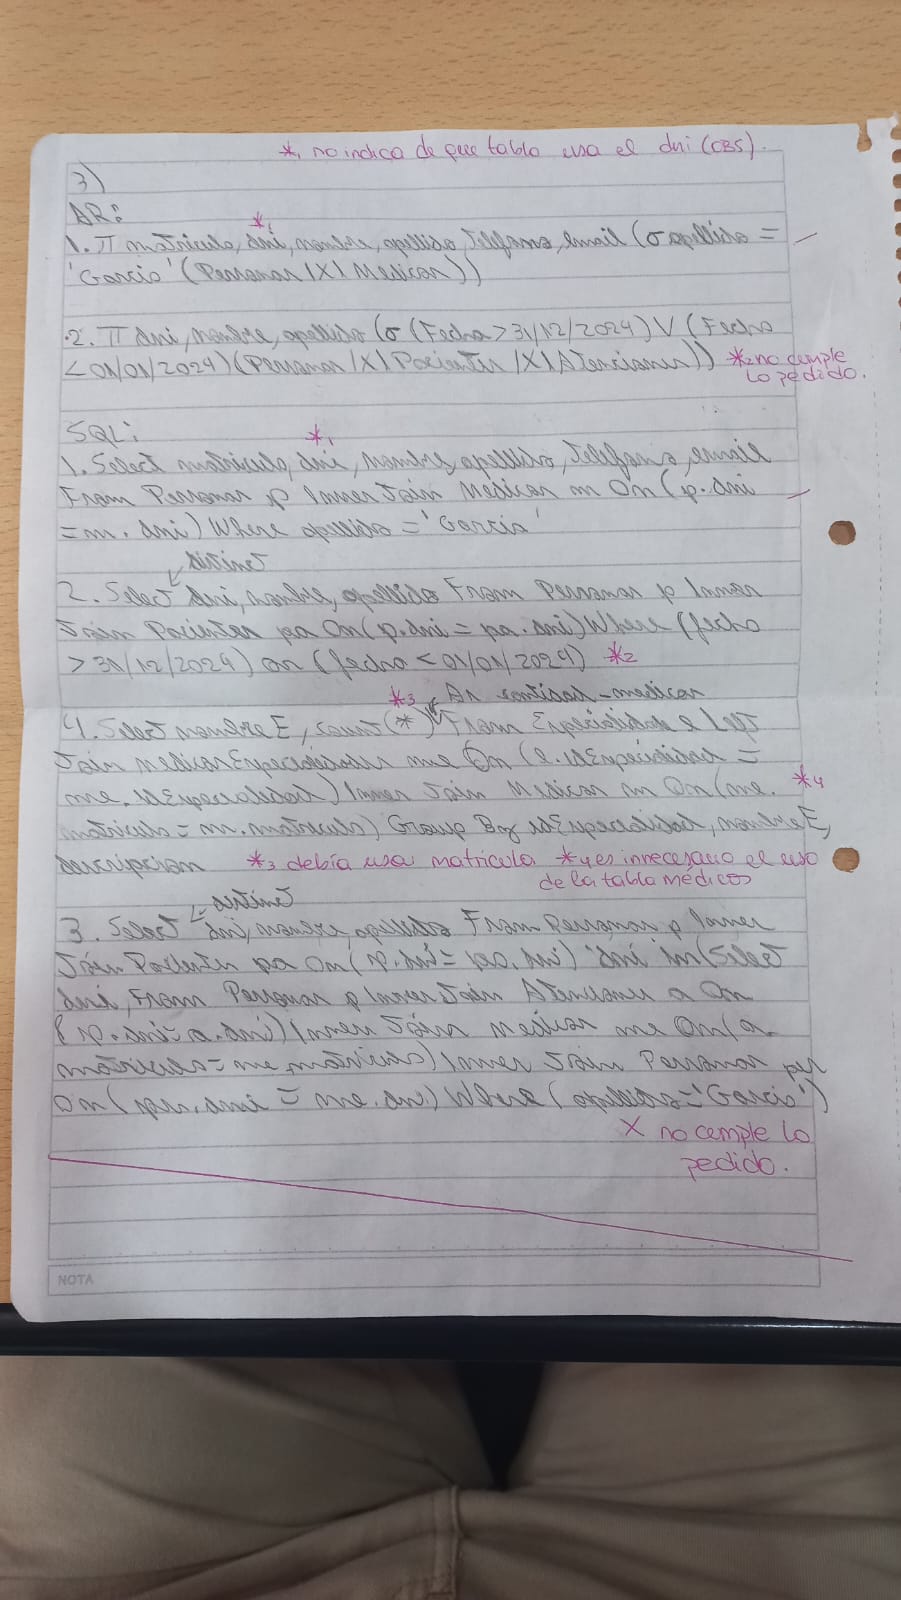 *1 no indica de que tabla usa el dni (OBS).
3)
AR:
*1
1. π matricula, dni, nombre, apellido, telefono, email (σ apellido =
'Garcia' (Personas |X| Medicos))
2. π dni, nombre, apellido (σ (Fecha > 31/12/2024) V (Fecha
< 01/01/2024) (Personas |X| Pacientes |X| Atenciones)) *2 no cumple
lo pedido.
SQL:
*1
1. Select matricula, dni, nombre, apellido, telefono, email
From Personas p Inner Join Medicos m On (p.dni
= m.dni) Where apellido = 'Garcia'
distinct
2. Select dni, nombre, apellido From Personas p Inner
Join Pacientes pa On (p.dni = pa.dni) Where (fecha
> 31/12/2024) or (fecha < 01/01/2024) *2
*3 As cantidad_medicos
4. Select nombreE, count(*) From Especialidad e Left
Join medicosEspecialidades me On (e.idEspecialidad =
me.idEspecialidad) Inner Join Medicos m On (me. *4
matricula = m.matricula) Group By idEspecialidad, nombreE,
descripcion *3 debía usa matricula. *4 es innecesario el uso
de la tabla médicos
distinct
3. Select dni, nombre, apellido From Personas p Inner
Join Pacientes pa On (p.dni = pa.dni) dni in (Select
dni, From Personas p Inner Join Atenciones a On
(p.dni = a.dni) Inner Join Medicos me On (a.
matricula = me.matricula) Inner Join Personas per
On (per.dni = me.dni) Where (apellido = 'Garcia')
X no cumple lo
pedido.
NOTA